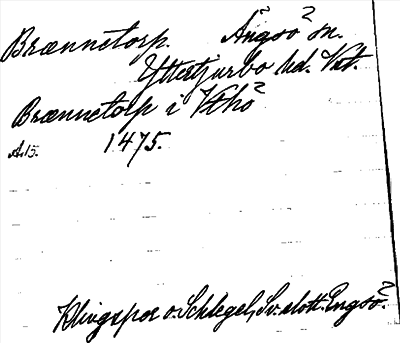 Brænnetorp. Ängsö sn.
Yttertjurbo hd. Vst.
Brænnetorp i
A.15. 1475.
Klingspor o. Schlegel, Sv. slott. Engsö.